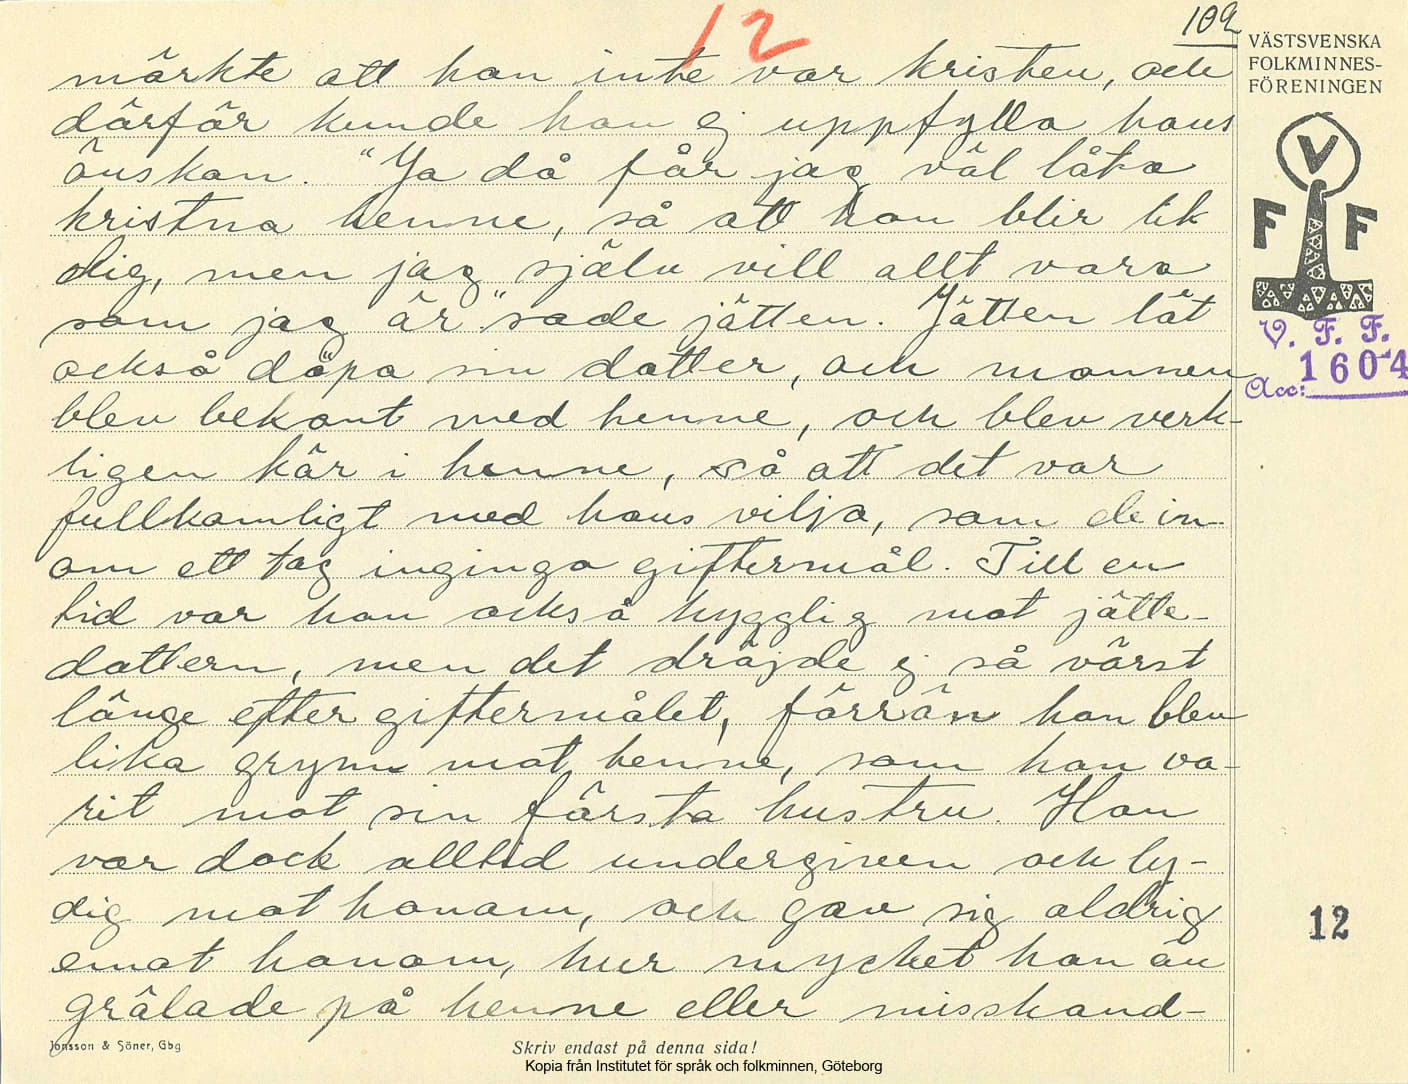 12
109
VÄSTSVENSKA
FOLKMINNES-
FÖRENINGEN
V
F F
V. F. F.
Acc: 1604
märkte att han inte var kristen, och
därför kunde han ej uppfylla hans
önskan. "Ja då får jag väl låta
kristna henne, så att hon blir lik
dig, men jag själv vill allt vara
som jag är" sade jätten. Jätten lät
också döpa sin dotter, och mannen
blev bekant med henne, och blev verk-
ligen kär i henne, så att det var
fullkomligt med hans vilja, som de in-
om ett tag ingingo giftermål. Till en
tid var han också hygglig mot jätte-
dottern, men det dröjde ej så värst
länge efter giftermålet, förrän han blev
lika grym mot henne, som han va-
rit mot sin första hustru. Hon
var dock alltid undergiven och ly-
dig mot honom, och gav sig aldrig
emot honom, hur mycket han än
grälade på henne eller misshand-
12
Jonsson & Söner, Gbg
Skriv endast på denna sida!
Kopia från Institutet för språk och folkminnen, Göteborg